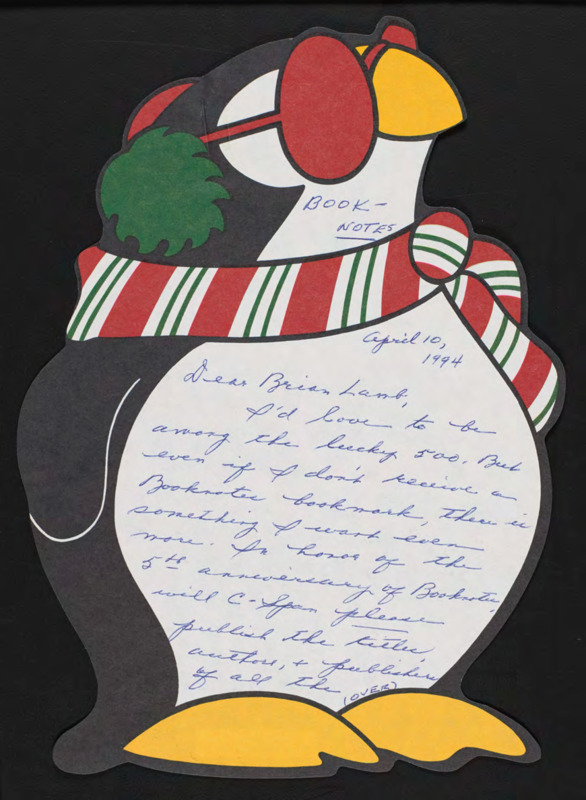 BOOK-
NOTES
April 10,
1994
Dear Brian Lamb,
I'd love to be
among the lucky 500. But
even if I don't receive a
Booknotes bookmark, there is
something I want even
more. In honor of the
5th anniversary of Booknotes,
will C-Span please
publish the titles,
authors, + publishers
of all the
(OVER)